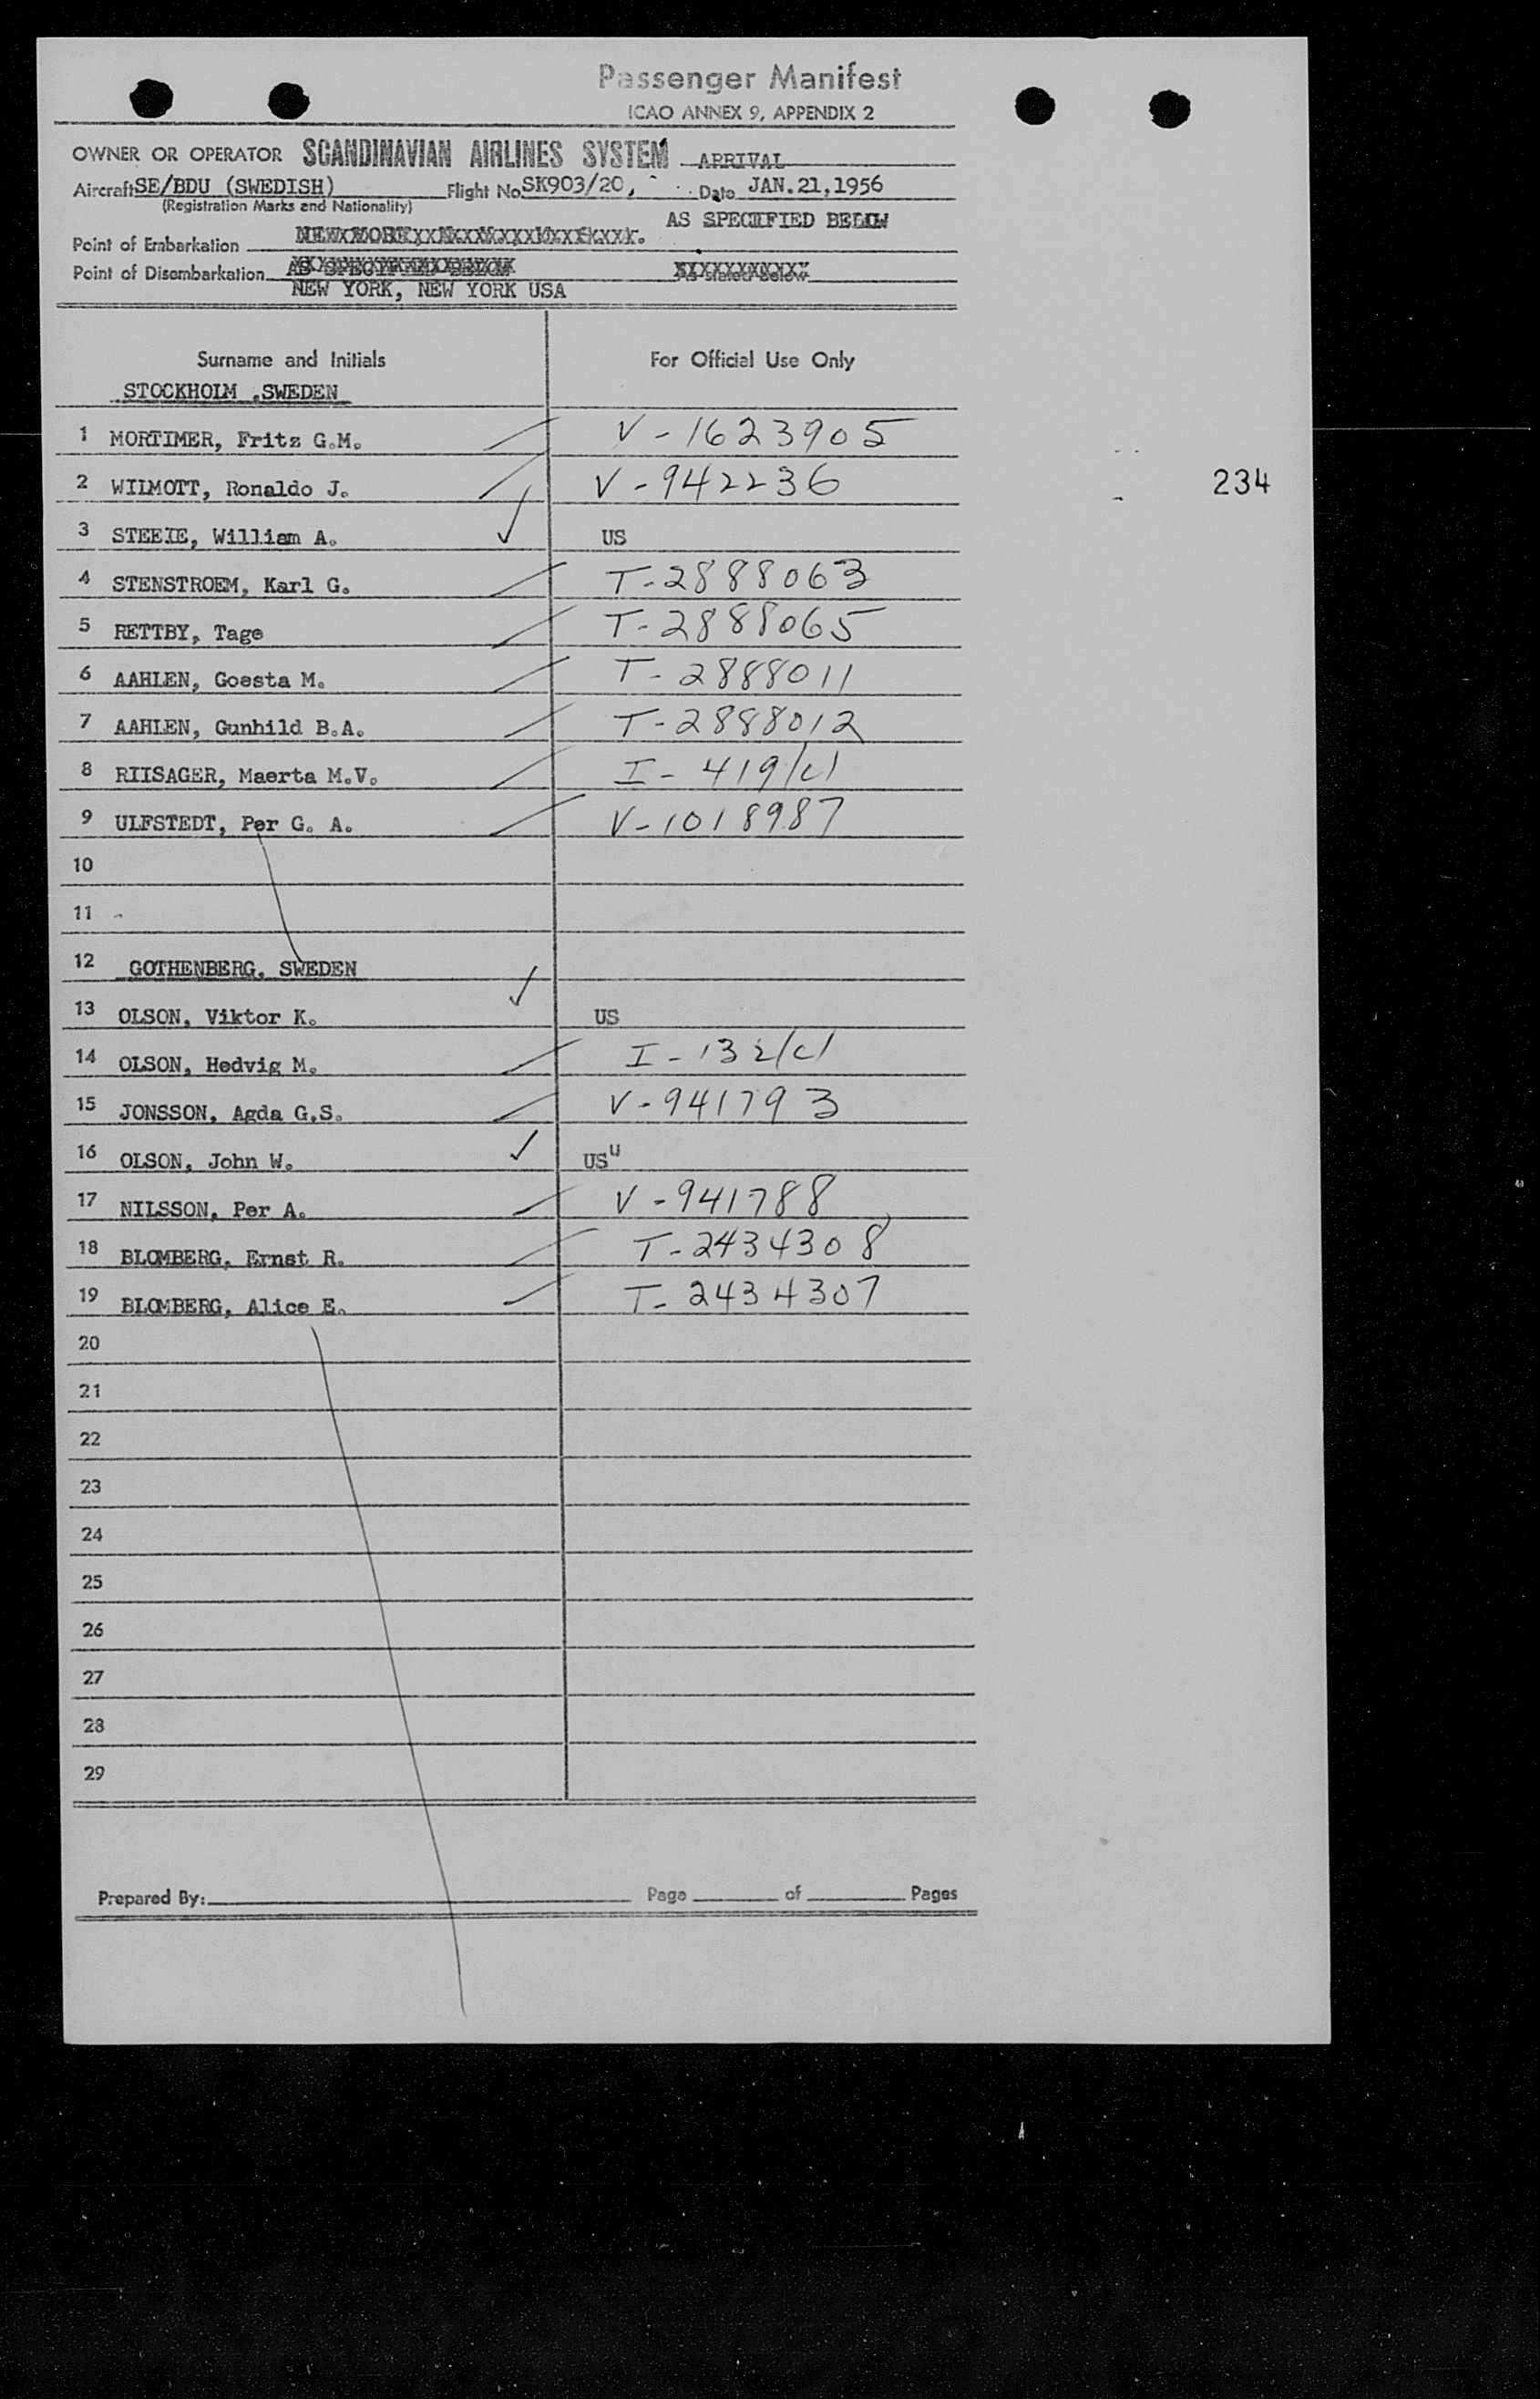 Passenger Manifest
ICAO ANNEX 9, APPENDIX 2
OWNER OR OPERATOR SCANDINAVIAN AIRLINES SYSTEM ARRIVAL
Aircraft SE/BDU (SWEDISH) Flight No SK903/20, Date JAN.21,1956
(Registration Marks and Nationality)
AS SPECIFIED BELOW
Point of Embarkation
Point of Disembarkation
NEW YORK, NEW YORK USA
Surname and Initials For Official Use Only
STOCKHOLM ,SWEDEN
1 MORTIMER, Fritz G.M. V-1623905
2 WILMOTT, Ronaldo J. V-942236
234
3 STEELE, William A. US
4 STENSTROEM, Karl G. T-2888063
5 RETTBY, Tage T-2888065
6 AAHLEN, Goesta M. T-2888011
7 AAHLEN, Gunhild B.A. T-2888012
8 RIISAGER, Maerta M.V. I-419/c/
9 ULFSTEDT, Per G. A. V-1018987
10
11
12 GOTHENBERG, SWEDEN
13 OLSON, Viktor K. US
14 OLSON, Hedvig M. I-132/c/
15 JONSSON, Agda G.S. V-941793
16 OLSON, John W. US
17 NILSSON, Per A. V-941788
18 BLOMBERG, Ernst R. T-2434308
19 BLOMBERG, Alice E. T-2434307
20
21
22
23
24
25
26
27
28
29
Prepared By: Page of Pages